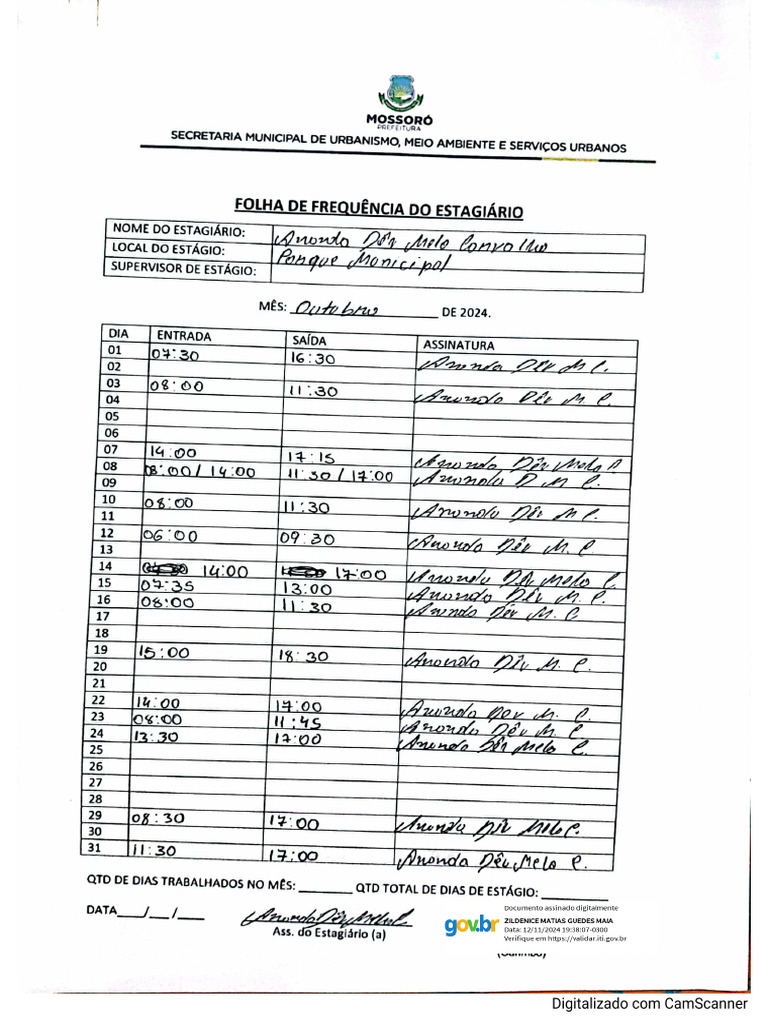 MOSSORÓ
PREFEITURA
SECRETARIA MUNICIPAL DE URBANISMO, MEIO AMBIENTE E SERVIÇOS URBANOS
FOLHA DE FREQUÊNCIA DO ESTAGIÁRIO
NOME DO ESTAGIÁRIO: Ananda Dêv Melo Carvalho
LOCAL DO ESTÁGIO: Parque Municipal
SUPERVISOR DE ESTÁGIO:
MÊS: Outubro DE 2024.
DIA ENTRADA SAÍDA ASSINATURA
01 07:30 16:30 Ananda Dêv M C.
02
03 08:00 11:30 Ananda Dêv M C.
04
05
06
07 14:00 17:15 Ananda Dêv Melo C
08 08:00 / 14:00 11:30 / 17:00 Ananda D M C.
09
10 08:00 11:30 Ananda Dêv M C.
11
12 06:00 09:30 Ananda Dêv M. C
13
14 14:00 17:00 Ananda Dêv Melo C.
15 07:35 13:00 Ananda Dêv M. C.
16 08:00 11:30 Ananda Dêv M. C
17
18
19 15:00 18:30 Ananda Dêv M. C.
20
21
22 14:00 17:00 Ananda Dêv M. C.
23 08:00 11:45 Ananda Dêv M. C
24 13:30 17:00 Ananda Dêv Melo C.
25
26
27
28
29 08:30 17:00 Ananda Dêv Melo C.
30
31 11:30 17:00 Ananda Dêv Melo C.
QTD DE DIAS TRABALHADOS NO MÊS: ________ QTD TOTAL DE DIAS DE ESTÁGIO: __________
DATA___/___/___
Ananda Dêv Melo C.
Ass. do Estagiário (a)
gov.br
Documento assinado digitalmente
ZILDENICE MATIAS GUEDES MAIA
Data: 12/11/2024 19:38:07-0300
Verifique em https://validar.iti.gov.br
(Carimbo)
Digitalizado com CamScanner